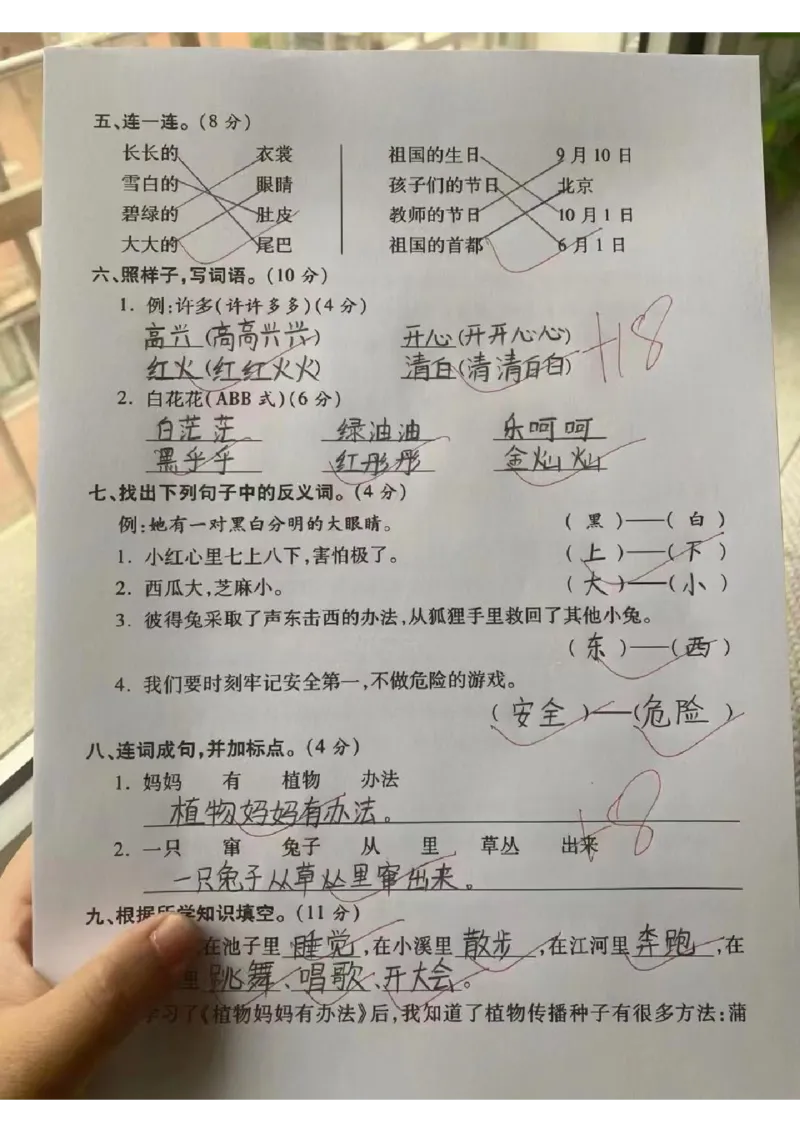 五、连一连。(8分)
长长的 衣裳 祖国的生日 9月10日
雪白的 眼睛 孩子们的节日 北京
碧绿的 肚皮 教师的节日 10月1日
大大的 尾巴 祖国的首都 6月1日
六、照样子,写词语。(10分)
1. 例:许多(许许多多)(4分)
高兴(高高兴兴) 开心(开开心心)
红火(红红火火) 清白(清清白白)
+18
2. 白花花(ABB式)(6分)
白茫茫 绿油油 乐呵呵
黑乎乎 红彤彤 金灿灿
七、找出下列句子中的反义词。(4分)
例:她有一对黑白分明的大眼睛。 (黑)—(白)
1. 小红心里七上八下,害怕极了。 (上)—(下)
2. 西瓜大,芝麻小。 (大)—(小)
3. 彼得兔采取了声东击西的办法,从狐狸手里救回了其他小兔。
(东)—(西)
4. 我们要时刻牢记安全第一,不做危险的游戏。
(安全)—(危险)
八、连词成句,并加标点。(4分)
1. 妈妈 有 植物 办法
植物妈妈有办法。
+8
2. 一只 窜 兔子 从 里 草丛 出来
一只兔子从草丛里窜出来。
九、根据所学知识填空。(11分)
,在池子里睡觉,在小溪里散步,在江河里奔跑,在
里跳舞、唱歌、开大会。
学习了《植物妈妈有办法》后,我知道了植物传播种子有很多方法:蒲